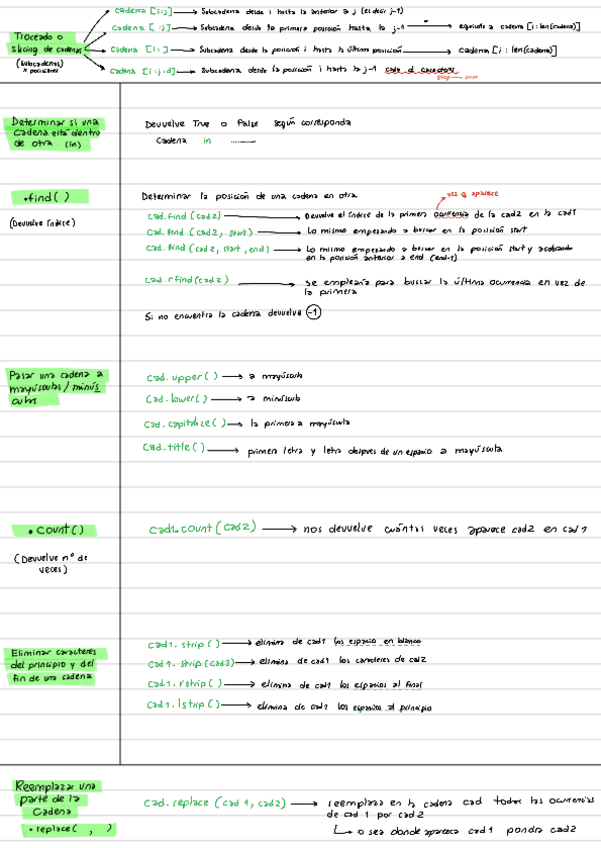 Troceado o slicing de cadenas
(subcadenas)
cadena [i:j] → Subcadena desde i hasta la anterior a j (es decir j-1)
cadena [:j] → Subcadena desde la primera posición hasta la j-1 → equivale a cadena [i:len(cadena)]
cadena [i:] → Subcadena desde la posición i hasta la última posición → cadena [i:len(cadena)]
cadena [i:j:d] → Subcadena desde la posición i hasta la j-1 cada d caracteres
Determinar si una
cadena está dentro
de otra (in)
Devuelve True o False según corresponda
Cadena in ..........
.find( )
(Devuelve índice)
Determinar la posición de una cadena en otra
vez q aparece
cad.find(cad2) → Devuelve el índice de la primera ocurrencia de la cad2 en la cad1
cad.find(cad2, start) → Lo mismo empezando a buscar en la posición start
cad.find(cad2, start, end) → Lo mismo empezando a buscar en la posición start y acabando
en la posición anterior a end (end-1)
cad.rfind(cad2) → se emplearía para buscar la última ocurrencia en vez de
la primera
Si no encuentra la cadena devuelve -1
Pasar una cadena a
mayúsculas/minús
culas
cad.upper( ) → a mayúscula
cad.lower( ) → a minúscula
cad.capitalize( ) → la primera a mayúscula
cad.title( ) → primera letra y letra despues de un espacio a mayúscula
.count( )
(Devuelve nº de
veces)
cad1.count(cad2) → nos devuelve cuántas veces aparece cad2 en cad1
Eliminar caracteres
del principio y del
fin de una cadena
cad1.strip( ) → elimina de cad1 los espacio en blanco
cad1.strip(cad2) → elimina de cad1 los caracteres de cad2
cad1.rstrip( ) → elimina de cad1 los espacios al final
cad1.lstrip( ) → elimina de cad1 los espacios al principio
Reemplazar una
parte de la
Cadena
• replace( , )
cad.replace(cad1, cad2) → reemplaza en la cadena cad todas las ocurrencias
de cad1 por cad2
↳ o sea donde aparezca cad1 pondra cad2